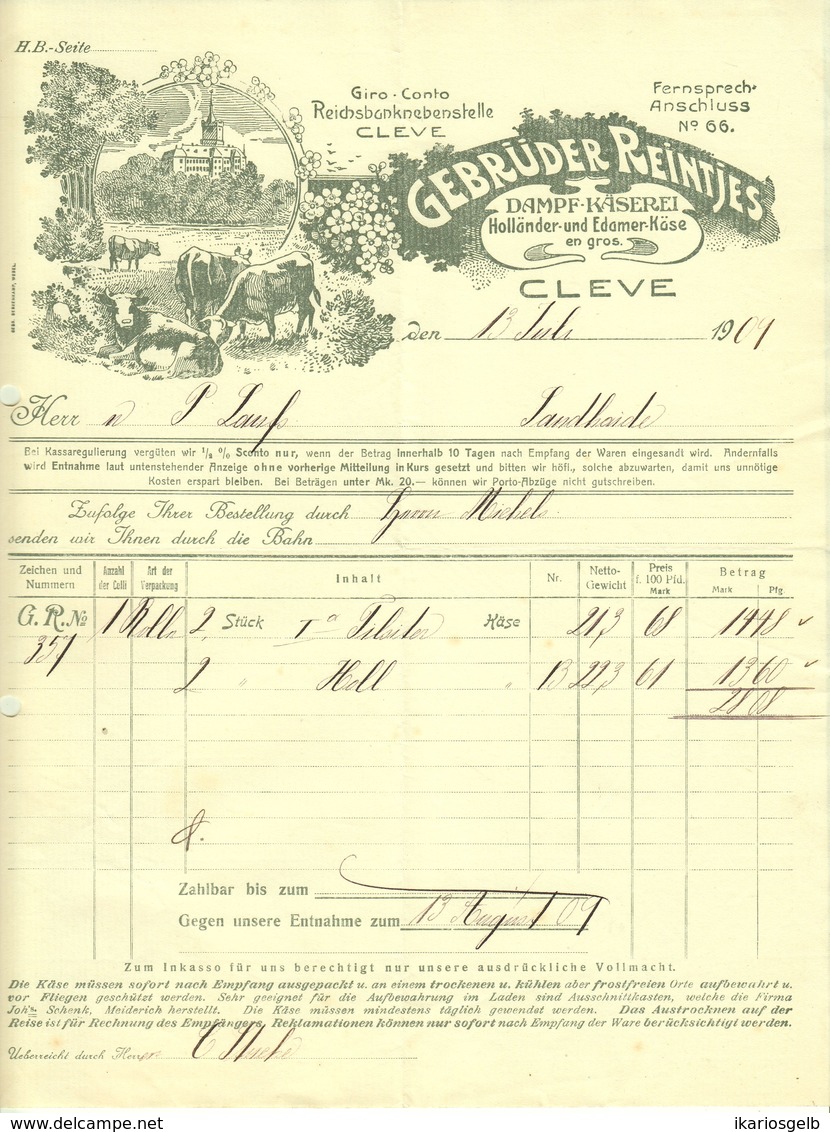 H.B.-Seite
Giro-Conto
Reichsbanknebenstelle
CLEVE
Fernsprech-
Anschluss
No 66.
GEBRÜDER REINTJES
DAMPF-KÄSEREI
Holländer- und Edamer-Käse
en gros.
CLEVE
den 13 Juli 1909
Herrn P
Bei Kassaregulierung vergüten wir 1/2 % Sconto nur, wenn der Betrag innerhalb 10 Tagen nach Empfang der Waren eingesandt wird. Andernfalls
wird Entnahme laut untenstehender Anzeige ohne vorherige Mitteilung in Kurs gesetzt und bitten wir höfl., solche abzuwarten, damit uns unnötige
Kosten erspart bleiben. Bei Beträgen unter Mk. 20.— können wir Porto-Abzüge nicht gutschreiben.
Zufolge Ihrer Bestellung durch Herrn Michels
senden wir Ihnen durch die Bahn
Zeichen und Nummern Anzahl der Colli Art der Verpackung Inhalt Nr. Netto-Gewicht Preis f. 100 Pfd. Mark Betrag Mark Pfg.
G. R. No 1 Rolle 2 Stück Ia Tilsiter Käse 213 68 14 48
357
2 " Holl " 13 223 61 13 60
28 08
Zahlbar bis zum
Gegen unsere Entnahme zum 13 August 09
Zum Inkasso für uns berechtigt nur unsere ausdrückliche Vollmacht.
Die Käse müssen sofort nach Empfang ausgepackt u. an einem trockenen u. kühlen aber frostfreien Orte aufbewahrt u.
vor Fliegen geschützt werden. Sehr geeignet für die Aufbewahrung im Laden sind Ausschnittkasten, welche die Firma
Joh's. Schenk, Meiderich herstellt. Die Käse müssen mindestens täglich gewendet werden. Das Austrocknen auf der
Reise ist für Rechnung des Empfängers. Reklamationen können nur sofort nach Empfang der Ware berücksichtigt werden.
Ueberreicht durch Herrn
www.delcampe.net
ikariosgelb